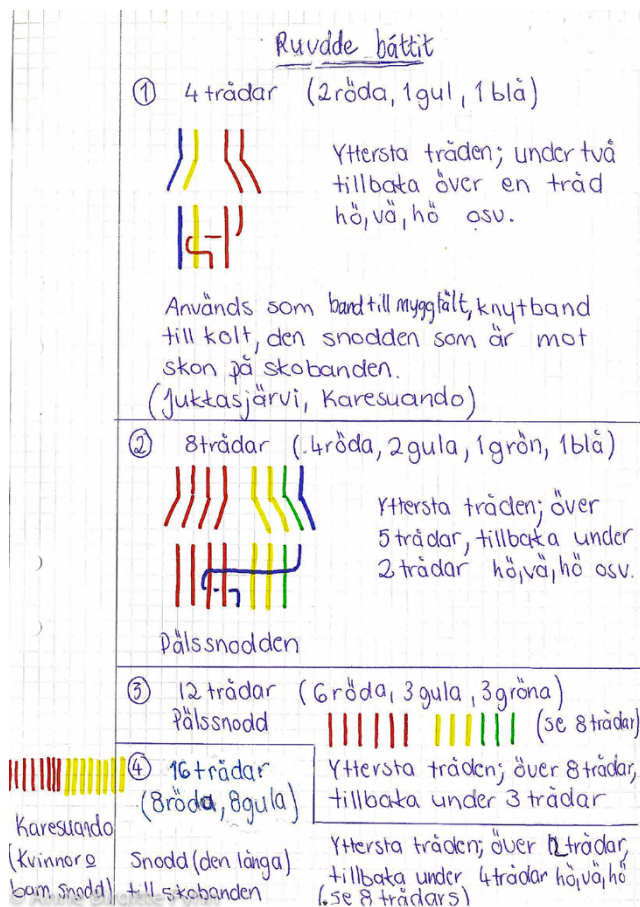 Ruvdde báttit
① 4 trådar (2röda, 1gul, 1blå)
Yttersta tråden; under två
tillbaka över en tråd
hö, vä, hö osv.
Används som band till myggtält, knytband
till kolt, den snodden som är mot
skon på skobanden.
(Jukkasjärvi, Karesuando)
② 8trådar (4röda, 2gula, 1grön, 1blå)
Yttersta tråden; över
5 trådar, tillbaka under
2 trådar hö, vä, hö osv.
Pälssnodden
③ 12 trådar (6röda, 3gula, 3gröna)
Pälssnodd
(se 8trådar)
Yttersta tråden; över 8trådar,
tillbaka under 3 trådar
④ 16trådar
(8röda, 8gula)
Karesuando
(Kvinnor o
barn snodd)
Snodd (den långa)
till skobanden
Yttersta tråden; över 12trådar,
tillbaka under 4trådar hö, vä, hö
(se 8trådars)